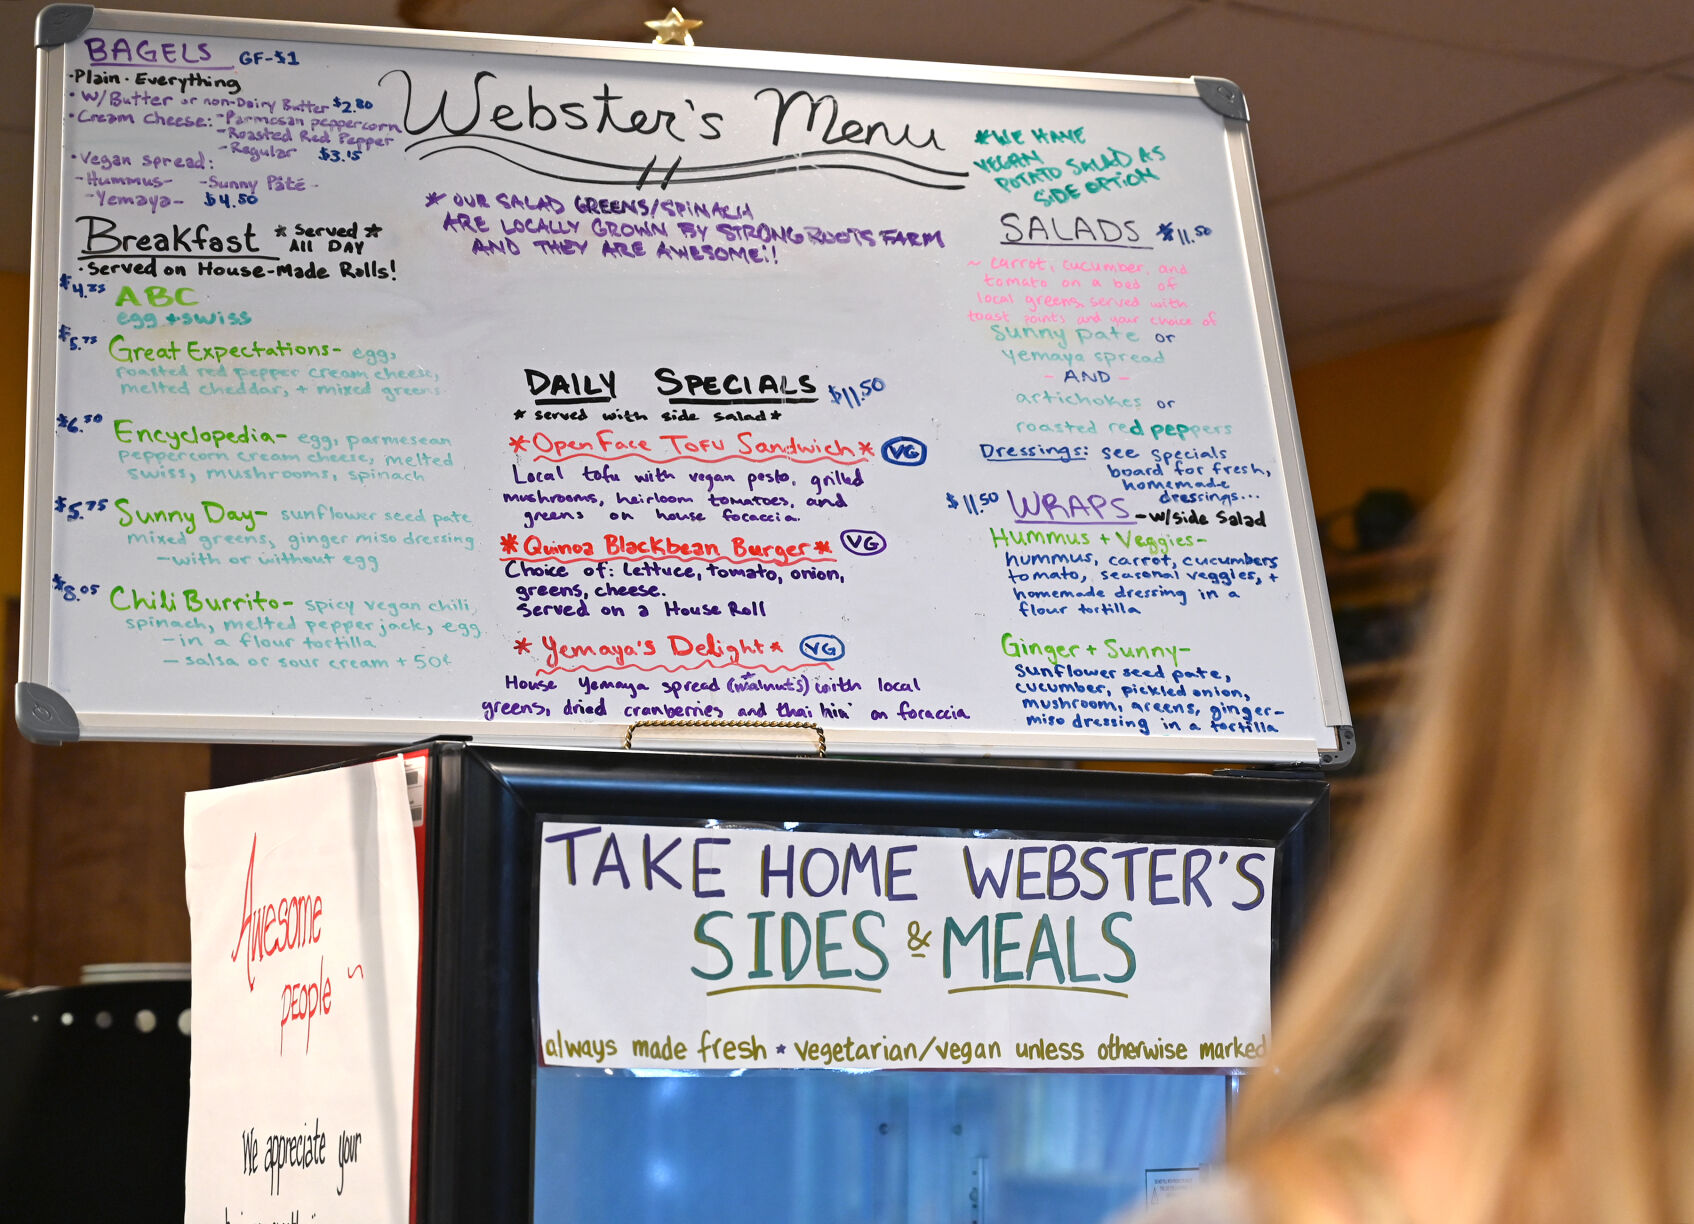 BAGELS GF-$1
·Plain·Everything
·W/Butter or non-Dairy Butter $2.80
·Cream Cheese: -Parmesan peppercorn
-Roasted Red Pepper
-Regular $3.15
·Vegan spread:
-Hummus- -Sunny Pâté-
-Yemaya- $4.50
Breakfast *Served*
All DAY
·Served on House-Made Rolls!
$4.25 ABC
egg + swiss
$5.75 Great Expectations- egg,
roasted red pepper cream cheese,
melted cheddar, + mixed greens
$6.50 Encyclopedia- egg, parmesean
peppercorn cream cheese, melted
swiss, mushrooms, spinach
$5.75 Sunny Day- sunflower seed pate
mixed greens, ginger miso dressing
-with or without egg
$8.05 Chili Burrito- spicy vegan chili,
spinach, melted pepper jack, egg
-in a flour tortilla
-salsa or sour cream + 50¢
Webster's Menu
* OUR SALAD GREENS/SPINACH
ARE LOCALLY GROWN BY STRONG ROOTS FARM
AND THEY ARE AWESOME!!
DAILY SPECIALS $11.50
* served with side salad*
*Open Face Tofu Sandwich* VG
Local tofu with vegan pesto, grilled
mushrooms, heirloom tomatoes, and
greens on house focaccia.
*Quinoa Blackbean Burger* VG
Choice of: lettuce, tomato, onion,
greens, cheese.
Served on a House Roll
* Yemaya's Delight* VG
House Yemaya spread (walnuts) with local
greens, dried cranberries and thai on foraccia
*WE HAVE
VEGAN
POTATO SALAD AS
SIDE OPTION
SALADS *$11.50
~ carrot, cucumber, and
tomato on a bed of
local greens, served with
toast points and your choice of
sunny pate or
yemaya spread
- AND -
artichokes or
roasted red peppers
Dressings: see specials
board for fresh,
homemade
dressings...
$11.50 WRAPS -w/side Salad
Hummus + Veggies-
hummus, carrot, cucumbers
tomato, seasonal veggies, +
homemade dressing in a
flour tortilla
Ginger + Sunny-
sunflower seed pate,
cucumber, pickled onion,
mushroom, greens, ginger-
miso dressing in a tortilla
TAKE HOME WEBSTER'S
SIDES & MEALS
always made fresh * vegetarian/vegan unless otherwise marked
Awesome
people ~
We appreciate your